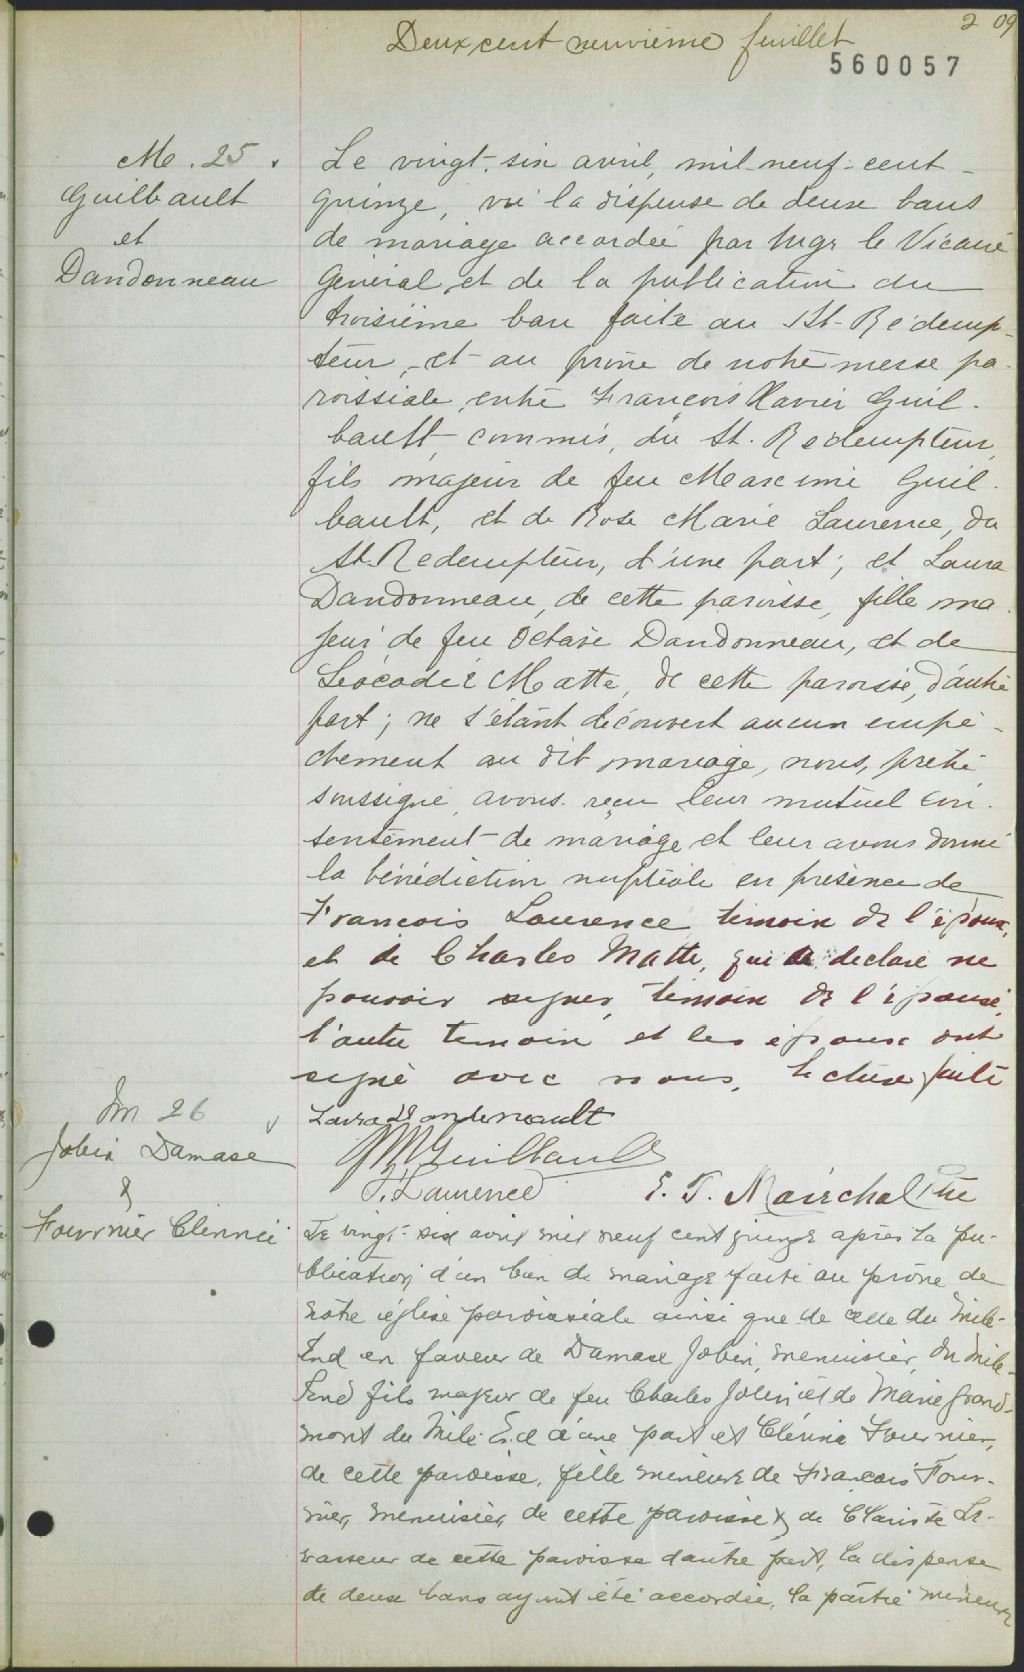 Deux cent neuvième feuillet
2 09
560057
M. 25.
Guilbault
et
Dandonneau
Le vingt-six avril, mil-neuf-cent-
quinze, vu la dispense de deux bans
de mariage accordée par Mgr le Vicaire
Général, et de la publication du
troisième ban faite au St-Rédemp-
teur, et au prône de notre messe pa-
roissiale, entre François Xavier Guil-
bault, commis, du St. Rédempteur,
fils majeur de feu Maxime Guil-
bault, et de Rose Marie Laurence, du
St. Redempteur, d'une part; et Laura
Dandonneau, de cette paroisse, fille ma-
jeur de feu Octave Dandonneau, et de
Léocadie Matte, de cette paroisse, d'autre
part; ne s'étant découvert aucun empê-
chement au dit mariage, nous, prêtre
soussigné, avons reçu leur mutuel con-
sentement de mariage et leur avons donné
la bénédiction nuptiale en présence de
François Laurence témoin de l'époux,
et de Charles Matte, qui a declaré ne
pouvoir signer, témoin de l'épouse,
l'autre temoin et les époux ont
signé avec nous. Lecture faite
Laura Dandeneault
Guilbault
F. Laurence
E. T. Maréchal Ptre
M 26
Jobin Damase
&
Fournier Clérinée
Le vingt-six avril mil neuf cent quinze après la pu-
blication d'un ban de mariage faite au prône de
notre église paroissiale ainsi que de celle du Mile-
End en faveur de Damase Jobin, menuisier, du Mile-
End fils majeur de feu Charles Jobin et de Marie Grand-
mont du Mile-End d'une part et Clérina Fournier,
de cette paroisse, fille mineure de François Four-
nier, menuisier, de cette paroisse & de Clariste Le-
vasseur de cette paroisse d'autre part, la dispense
de deux bans ayant été accordée, la partie mineure